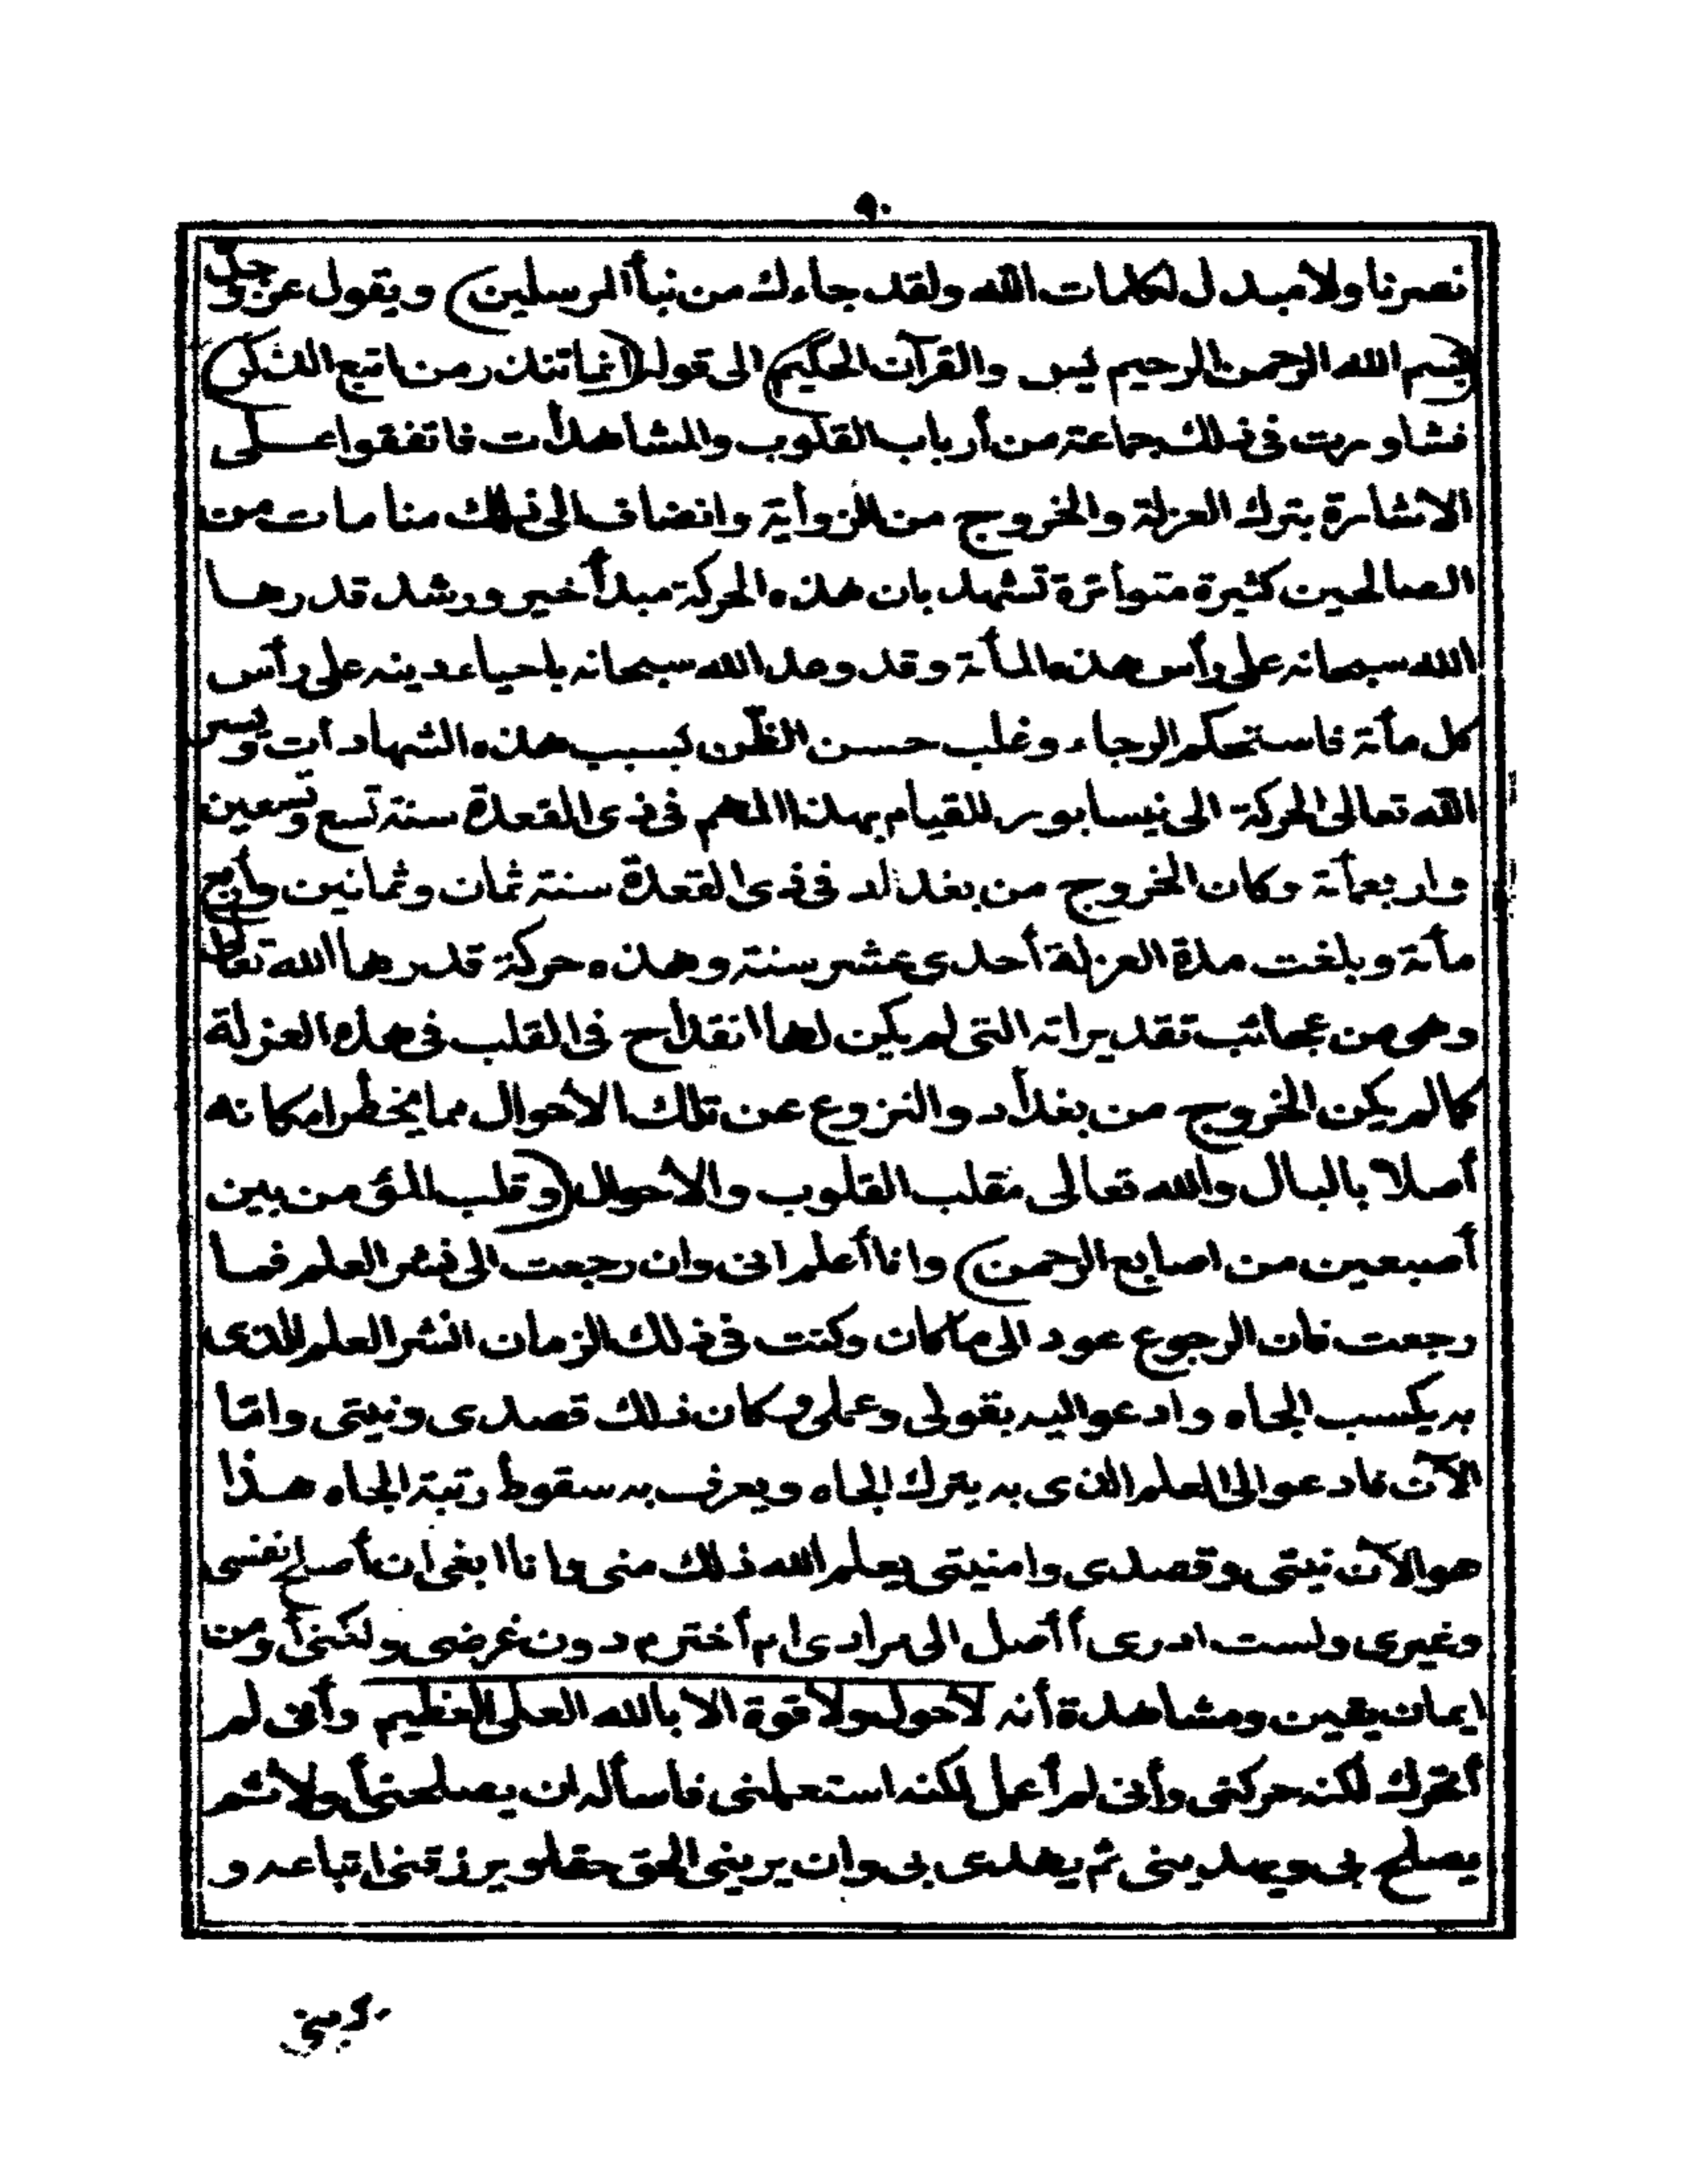 ٩٠
نصرنا ولا مبدل لكلمات الله ولقد جاءك من نبأ المرسلين) ويقول عز وجل
(بسم الله الرحمن الرحيم يس والقرآن الحكيم) الى قوله (انما تنذر من اتبع الذكر)
فشاورت فى ذلك جماعة من أرباب القلوب والمشاهدات فاتفقوا على
الاشارة بترك العزلة والخروج من الزواية وانضاف الى ذلك منامات من
الصالحين كثيرة متواترة تشهد بان هذه الحركة مبدأ خير ورشد قدرها
الله سبحانه على رأس هذه المأة وقد وعد الله سبحانه باحياء دينه على رأس
كل مأة فاستحكم الرجاء وغلب حسن الظن بسبب هذه الشهادات ويسر
الله تعالى الحركة الى نيسابور للقيام بهذا المهم فى ذى القعدة سنة تسع وتسعين
واربعمأة وكان الخروج من بغداد فى ذى القعدة سنة ثمان وثمانين وأربع
مأة وبلغت مدة العزلة أحدى عشر سنة وهذه حركة قدرها الله تعالى
وهو من عجائب تقديراته التى لم يكن لها انقداح فى القلب فى هذه العزلة
كما لم يكن الخروج من بغداد والنزوع عن تلك الأحوال مما يخطر امكانه
أصلا بالبال والله تعالى مقلب القلوب والاحوال (وقلب المؤمن بين
أصبعين من اصابع الرحمن) وانا أعلم انى وان رجعت الى نشر العلم فما
رجعت فان الرجوع عود الى ما كان وكنت فى ذلك الزمان انشر العلم الذى
به يكسب الجاه وادعو اليه بقولى وعملى وكان ذلك قصدى ونيتى وامّا
الآن فادعو الى العلم الذى به يترك الجاه ويعرف به سقوط رتبة الجاه هذا
هو الآن نيتى وقصدى وامنيتى يعلم الله ذلك منى وانا ابغى ان أصلح نفسى
وغيرى ولست ادرى أأصل الى مرادى ام أخترم دون غرضى ولكنى أومن
ايمان يقين ومشاهدة أنه لا حول ولا قوة الا بالله العلى العظيم وأنى لم
أتحرك لكنه حركنى وأنى لم أعمل لكنه استعملنى فاسأله ان يصلحنى أولا ثم
يصلح بى ويهدينى ثم يهدى بى وان يرينى الحق حقا ويرزقنى اتباعه و